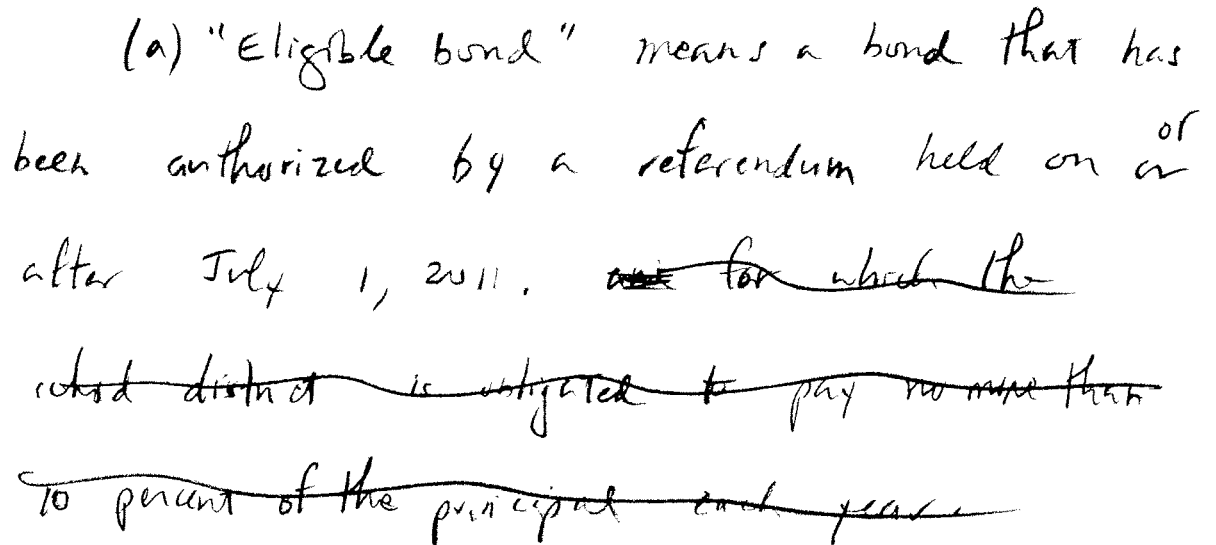 (a) "Eligible bond" means a bond that has
been authorized by a referendum held on or or
after July 1, 2011. and for which the
school district is obligated to pay no more than
10 percent of the principal each year.